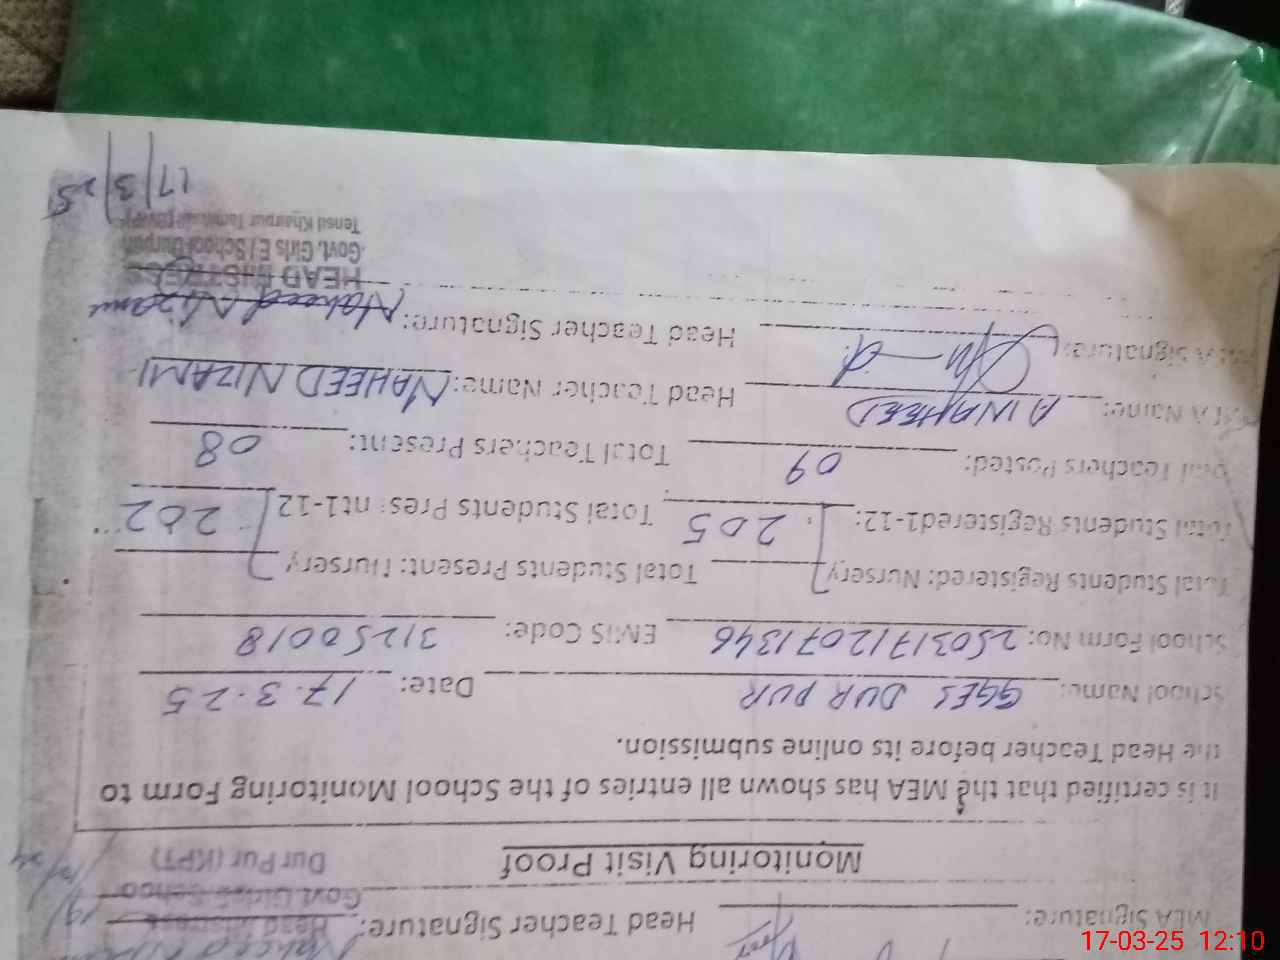 MEA Signature: Head Teacher Signature:
Head Mistress
Govt Girls School
Dur Pur (KPT)
Monitoring Visit Proof
It is certified that the MEA has shown all entries of the School Monitoring Form to
the Head Teacher before its online submission.
School Name: GGES DUR PUR Date: 17.3.25
School Form No: 25031712071346 EMIS Code: 31250018
Total Students Registered: Nursery Total Students Present: Nursery
Total Students Registered1-12: 205 Total Students Present1-12 202
Total Teachers Posted: 09 Total Teachers Present: 08
MEA Name: Head Teacher Name: NAHEED NIZAMI
MEA Signature: Head Teacher Signature: Naheed Nizami
HEAD MISTRESS
Govt. Girls E / School Durpur
Tehsil Khairpur Tamewali
17/3/25
17-03-25 12:10